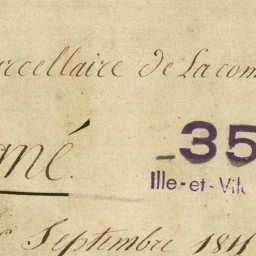 rcellaire de La com
gné
- 35
Ille-et-Vil
Septembre 181